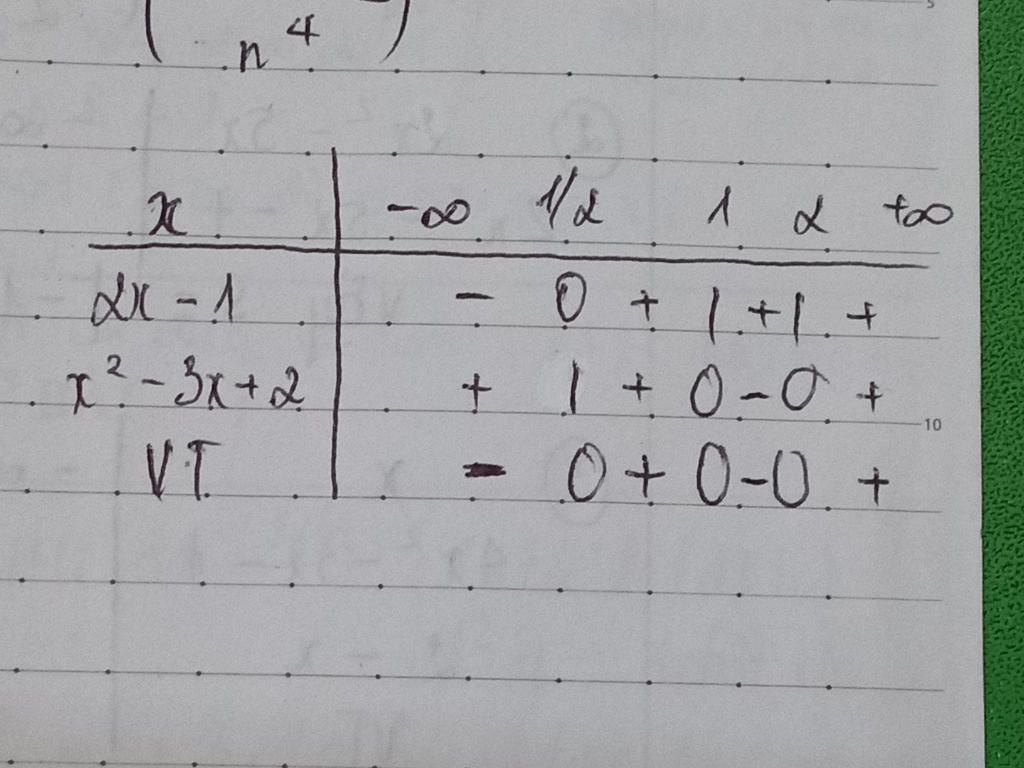 ( n⁴ )
5
x | -∞ 1/2 1 2 +∞
2x - 1 | - 0 + | + | +
x² - 3x + 2 | + | + 0 - 0 +
10
VT | - 0 + 0 - 0 +